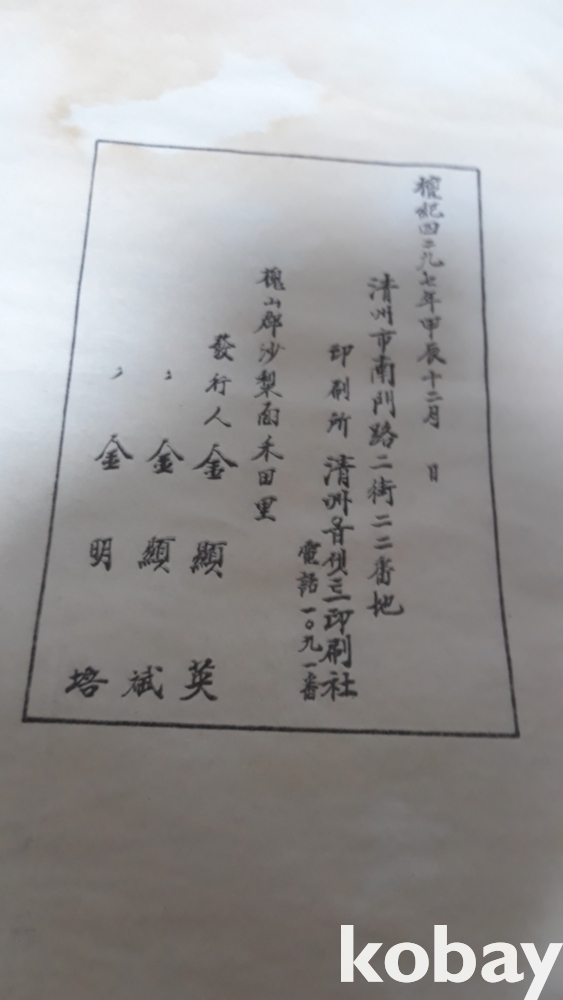 檀紀四二九七年甲辰十二月　日
清州市南門路二街二二番地
印刷所　清州
印刷社
電話一〇九一番
槐山郡沙梨面禾田里
發行人　金顯英
〃　金顯斌
〃　金明培
kobay